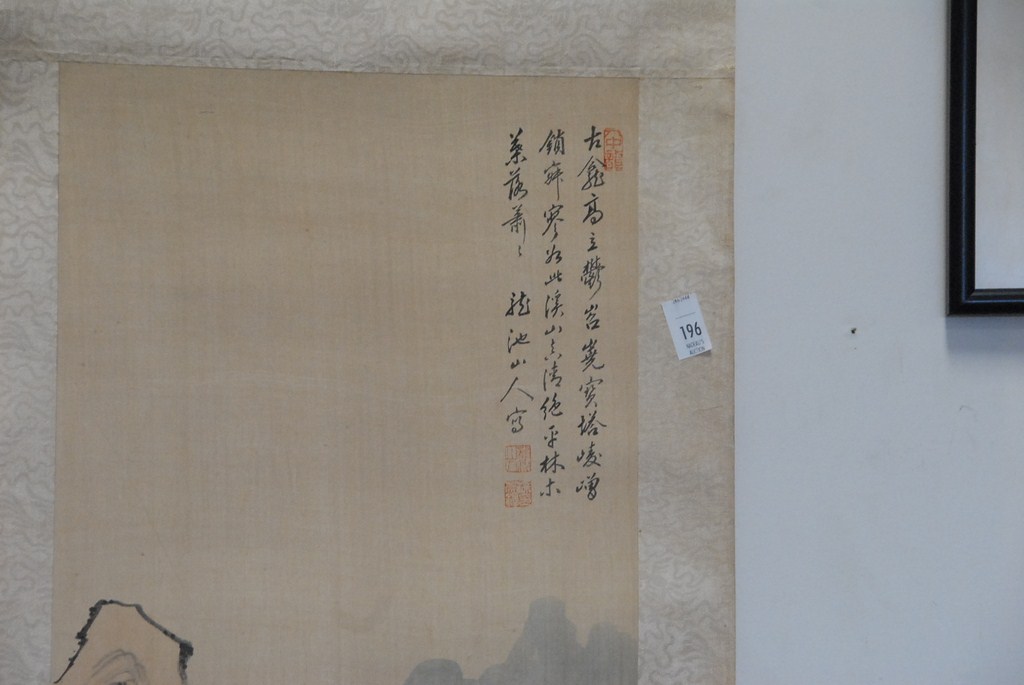 古龕高立鬱岧嶤寶塔崚嶒
鎖寂寥如此溪山真清絕平林木
葉落蕭〻 龍池山人寫
196
AUCTION